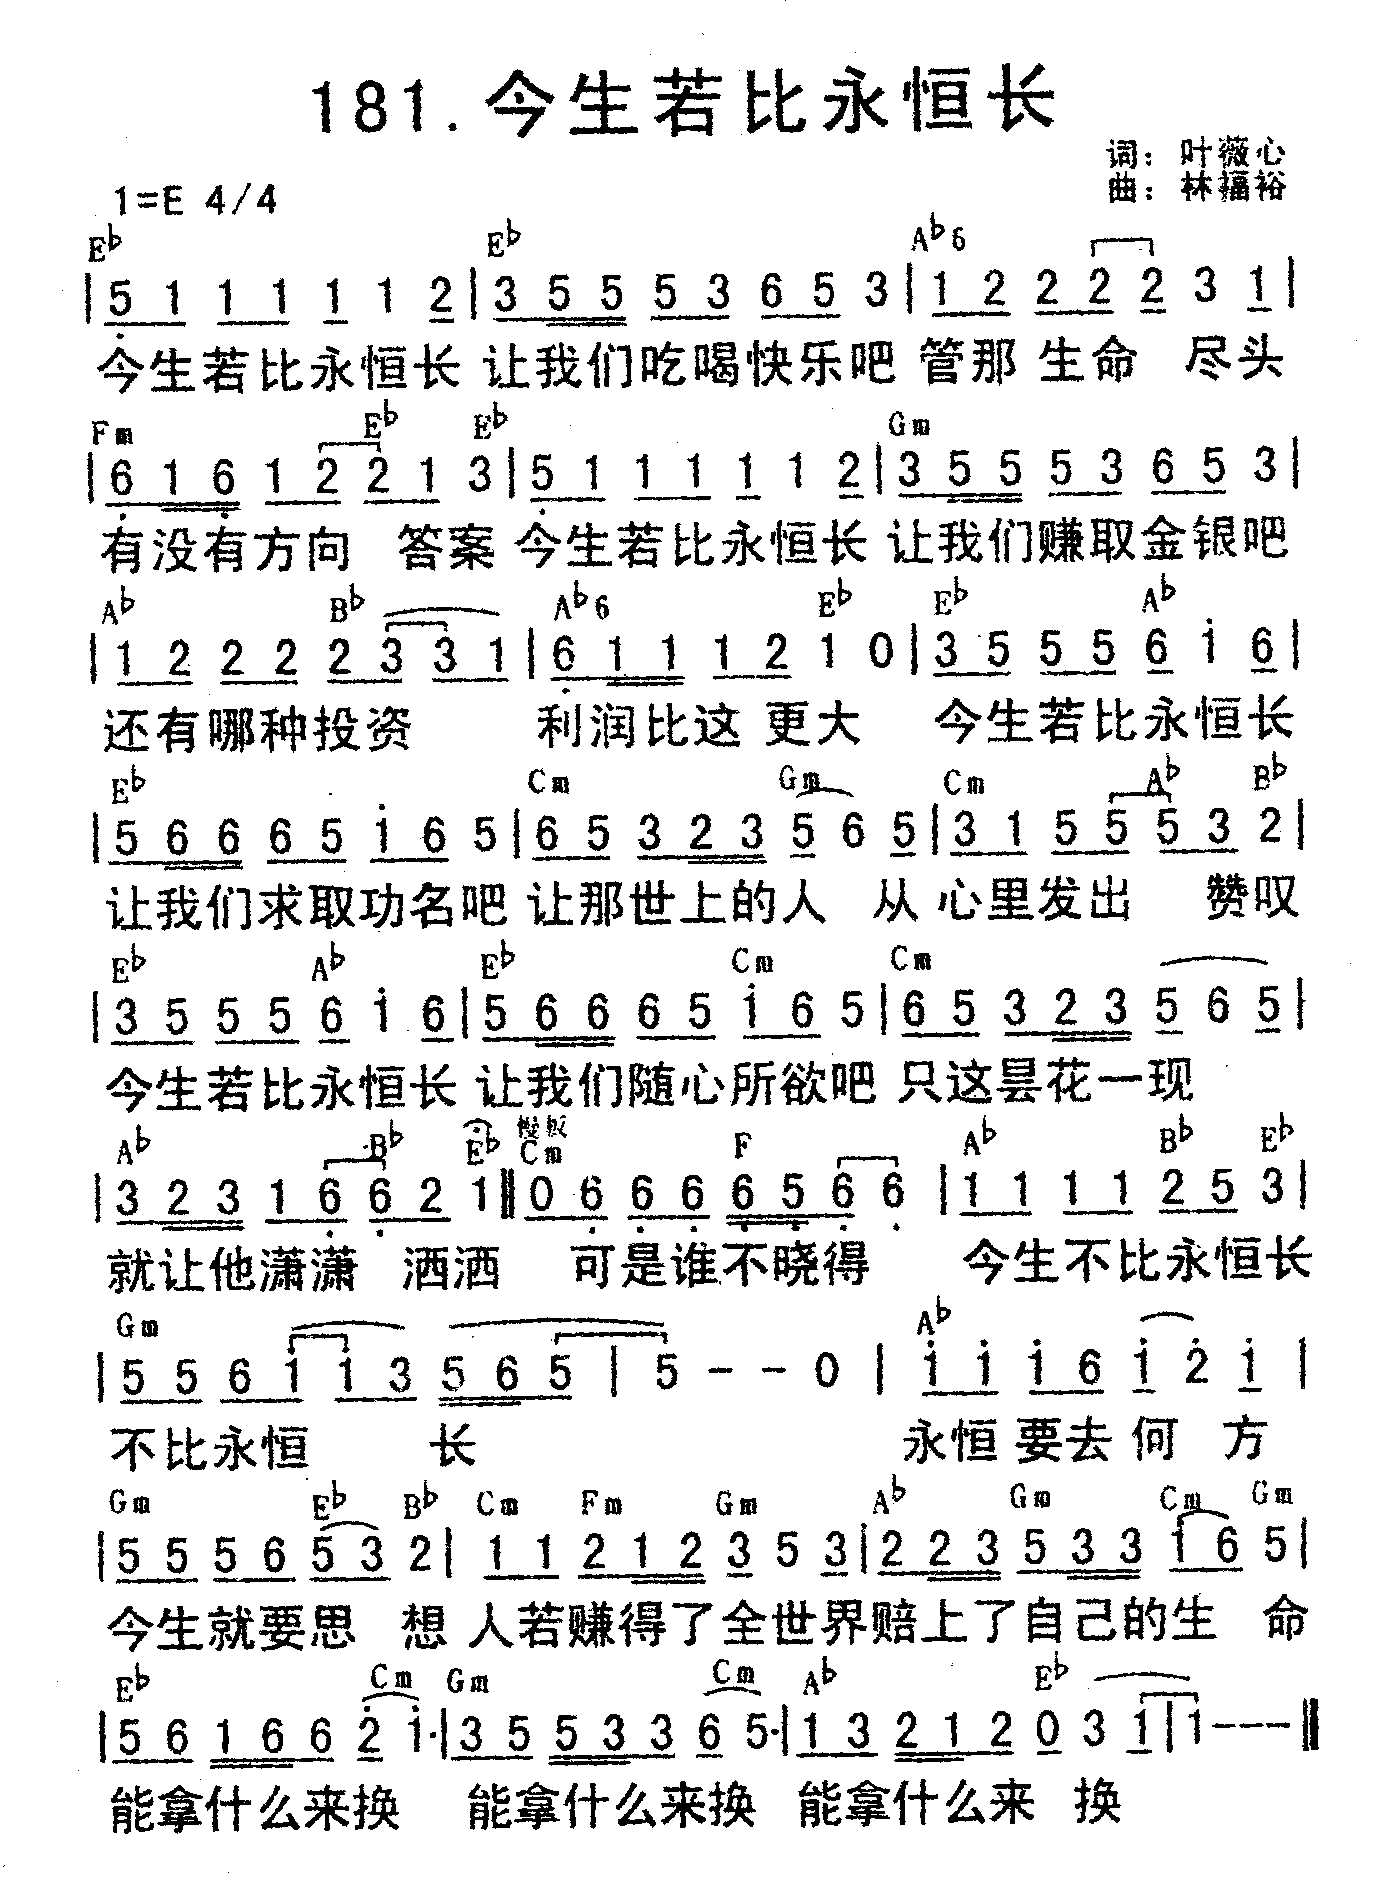 181.今生若比永恒长
词：叶薇心
曲：林福裕
1=E 4/4
E♭ E♭ A♭6
|5 1 1 1 1 1 2|3 5 5 5 3 6 5 3|1 2 2 2 2 3 1|
今生若比永恒长 让我们吃喝快乐吧 管那 生命 尽头
Fm E♭ E♭ Gm
|6 1 6 1 2 2 1 3|5 1 1 1 1 1 2|3 5 5 5 3 6 5 3|
有没有方向 答案 今生若比永恒长 让我们赚取金银吧
A♭ B♭ A♭6 E♭ E♭ A♭
|1 2 2 2 2 3 3 1|6 1 1 1 2 1 0|3 5 5 5 6 i 6|
还有哪种投资 利润比这 更大 今生若比永恒长
E♭ Cm Gm Cm A♭ B♭
|5 6 6 6 5 i 6 5|6 5 3 2 3 5 6 5|3 1 5 5 5 3 2|
让我们求取功名吧 让那世上的人 从 心里发出 赞叹
E♭ A♭ E♭ Cm Cm
|3 5 5 5 6 i 6|5 6 6 6 5 i 6 5|6 5 3 2 3 5 6 5|
今生若比永恒长 让我们随心所欲吧 只这昙花一现
慢板
A♭ B♭ E♭ Cm F A♭ B♭ E♭
|3 2 3 1 6 6 2 1‖0 6 6 6 6 5 6 6|1 1 1 1 2 5 3|
就让他潇潇 洒洒 可是谁不晓得 今生不比永恒长
Gm A♭
|5 5 6 i i 3 5 6 5|5 - - 0|i i i 6 i 2 i|
不比永恒 长 永恒 要去 何 方
Gm E♭ B♭ Cm Fm Gm A♭ Gm Cm Gm
|5 5 5 6 5 3 2|1 1 2 1 2 3 5 3|2 2 3 5 3 3 1 6 5|
今生就要思 想 人若赚得了全世界赔上了自己的生 命
E♭ Cm Gm Cm A♭ E♭
|5 6 1 6 6 2 i·|3 5 5 3 3 6 5·|1 3 2 1 2 0 3 1|1---‖
能拿什么来换 能拿什么来换 能拿什么来 换